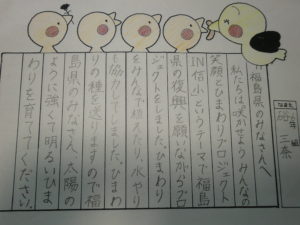 福島県のみなさんへ
私たちは咲かせようみんなの
笑顔とひまわりプロジェクト
IN信小というテーマで福島
県の復興を願いながらプロ
ジェクトをしました。ひまわり
をみんなで植えたり、水やり
も協力してしました。ひまわ
りの種を送りますので福
島県のみなさん、太陽の
ように強くて明るいひま
わりを育ててください。